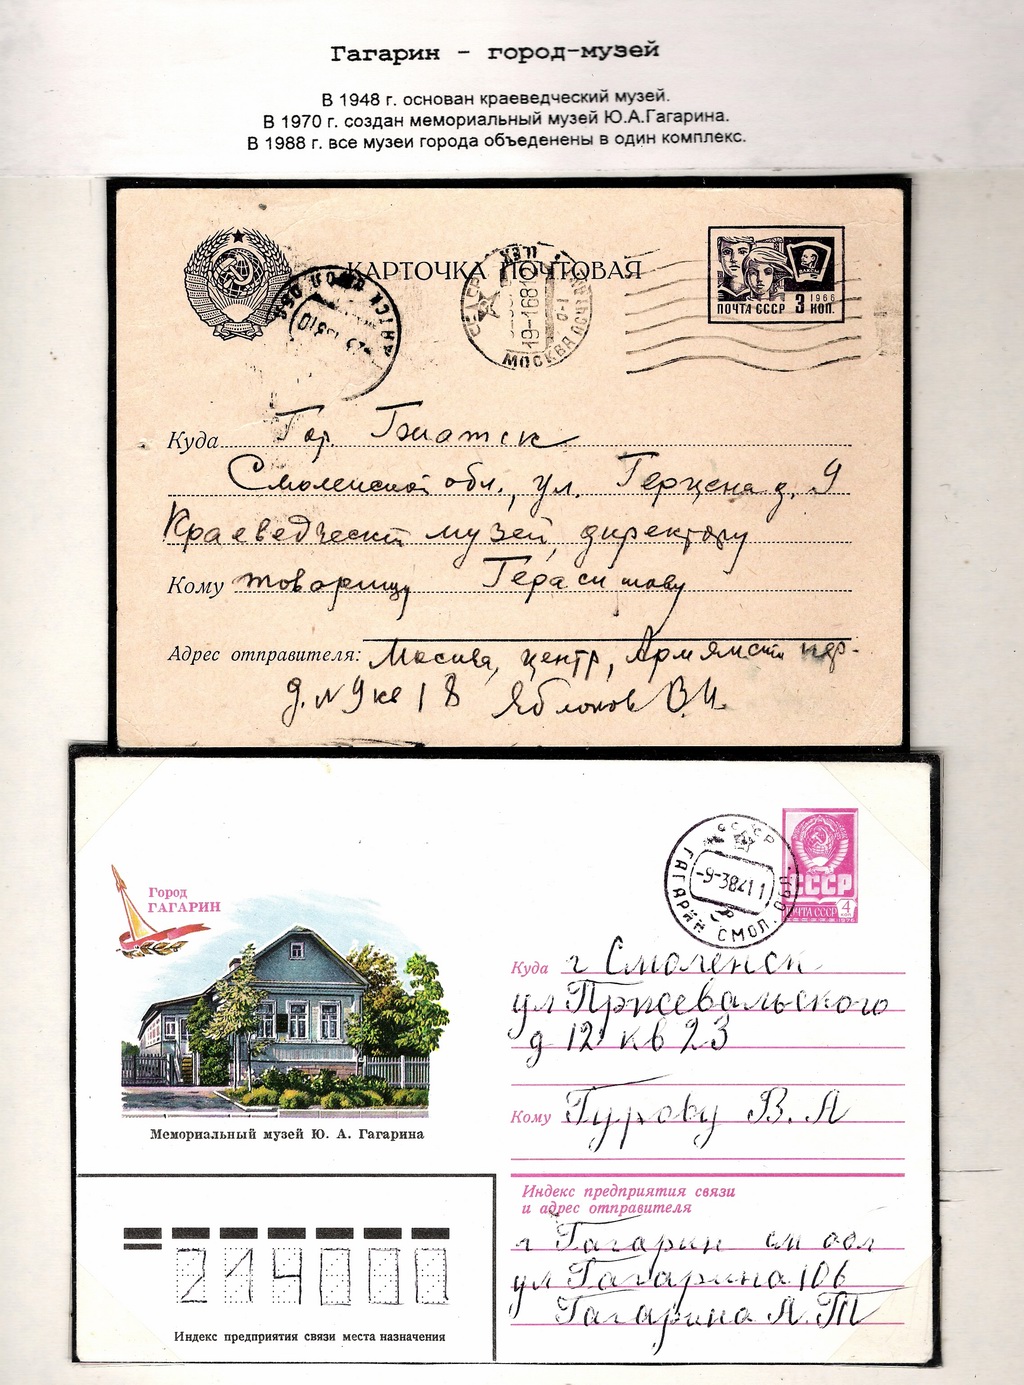 Гагарин - город-музей
В 1948 г. основан краеведческий музей.
В 1970 г. создан мемориальный музей Ю.А.Гагарина.
В 1988 г. все музеи города объеденены в один комплекс.
КАРТОЧКА ПОЧТОВАЯ
19-1681
МОСКВА
ВЛКСМ
1966
ПОЧТА СССР 3 КОП.
Куда Гор. Гжатск
Смоленской обл., ул. Герцена д. 9
Краеведческий музей, директору
Кому товарищу Герасимову
Адрес отправителя: Москва, центр, Армянский пер.
д. № 9 кв 18 Яблоков В.И.
СССР
-9-38211
ГАГАРИН СМОЛ. ОБЛ.
СССР
ПОЧТА СССР 4 КОП
1976
Город
ГАГАРИН
Мемориальный музей Ю. А. Гагарина
Куда г Смоленск
ул Пржевальского
д 12 кв 23
Кому Гурову В. А
Индекс предприятия связи
и адрес отправителя
г Гагарин см обл
ул Гагарина 106
Гагарина А. Т
214000
Индекс предприятия связи места назначения